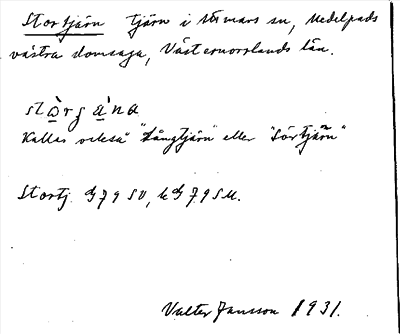 Stortjärn tjärn i Stömars sn, Medelpads
västra domsaga, Västernorrlands län.
stò̱rga̱'na
Kallas också "Långtjärn" eller "Sörtjärn"
Stortj. G 79 SV, k G 79 SM.
Valter Jansson 1931.